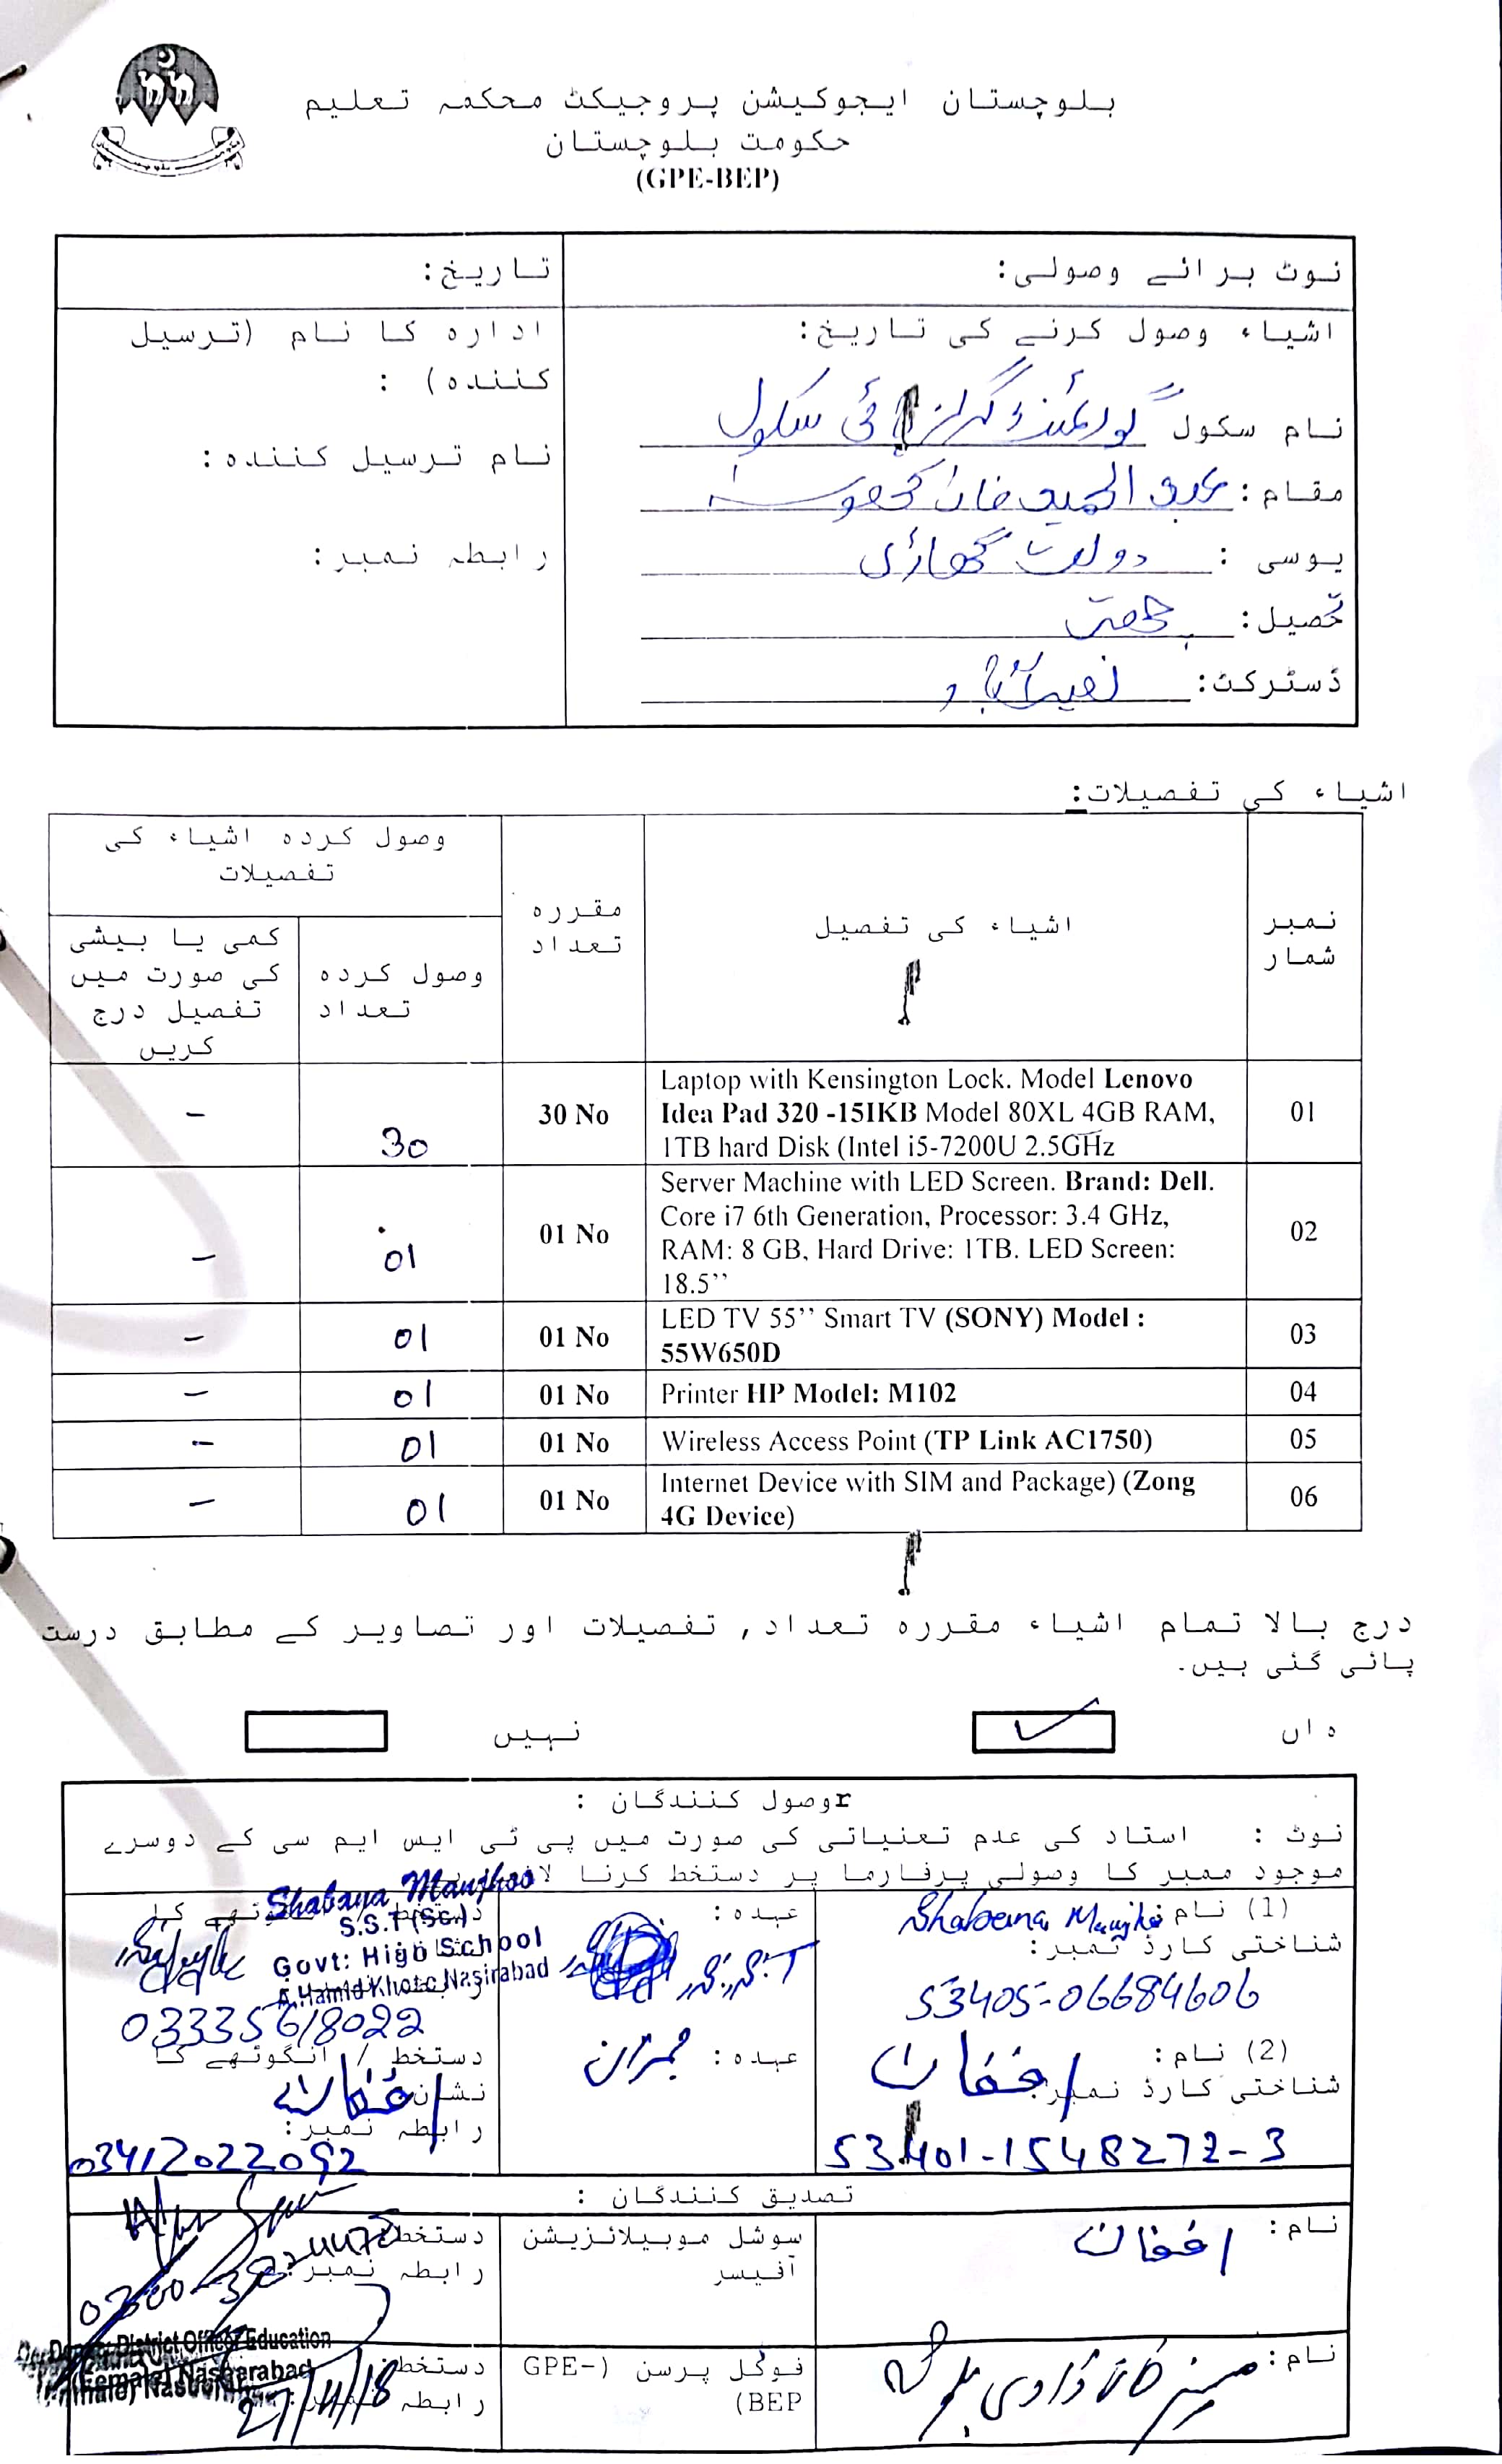 بلوچستان ایجوکیشن پروجیکٹ محکمہ تعلیم
حکومت بلوچستان
(GPE-BEP)
نوٹ برائے وصولی:
تاریخ:
اشیاء وصول کرنے کی تاریخ:
نام سکول گورنمنٹ گرلز ہائی سکول
مقام: عبدالحمید خان کھوسہ
یوسی : دولت گھاڑی
تحصیل: چھتر
ڈسٹرکٹ: نصیرآباد
ادارہ کا نام (ترسیل
کنندہ) :
نام ترسیل کنندہ:
رابطہ نمبر:
اشیاء کی تفصیلات:
نمبر شمار
اشیاء کی تفصیل
مقررہ تعداد
وصول کردہ اشیاء کی تفصیلات
وصول کردہ تعداد
کمی یا بیشی کی صورت میں تفصیل درج کریں
01 Laptop with Kensington Lock. Model Lenovo
Idea Pad 320 -15IKB Model 80XL 4GB RAM,
1TB hard Disk (Intel i5-7200U 2.5GHz
30 No 30 -
02 Server Machine with LED Screen. Brand: Dell.
Core i7 6th Generation, Processor: 3.4 GHz,
RAM: 8 GB, Hard Drive: 1TB. LED Screen:
18.5’’
01 No 01 -
03 LED TV 55’’ Smart TV (SONY) Model :
55W650D
01 No 01 -
04 Printer HP Model: M102 01 No 01 -
05 Wireless Access Point (TP Link AC1750) 01 No 01 -
06 Internet Device with SIM and Package) (Zong
4G Device)
01 No 01 -
درج بالا تمام اشیاء مقررہ تعداد, تفصیلات اور تصاویر کے مطابق درست
پائی گئی ہیں۔
ہاں ✓ نہیں
rوصول کنندگان :
نوٹ : استاد کی عدم تعنیاتی کی صورت میں پی ٹی ایس ایم سی کے دوسرے
موجود ممبر کا وصولی پرفارما پر دستخط کرنا
(1) نام: Shabana Manjho
شناختی کارڈ نمبر:
53405-06684606
عہدہ:
Shabana Manjhoo
S.S.T (Sc.)
Govt: High School
A.Hamid Khosa Nasirabad
03335618022
(2) نام:
شناختی کارڈ نمبر:
53401-1548272-3
عہدہ:
دستخط / انگوٹھے کا
نشان
رابطہ نمبر:
03412022092
تصدیق کنندگان :
نام:
سوشل موبیلائزیشن
آفیسر
دستخط:
رابطہ نمبر:
نام:
فوکل پرسن (GPE-
BEP)
دستخط:
رابطہ نمبر:
Deputy District Officer Education
(Female) Naseerabad
27/4/18